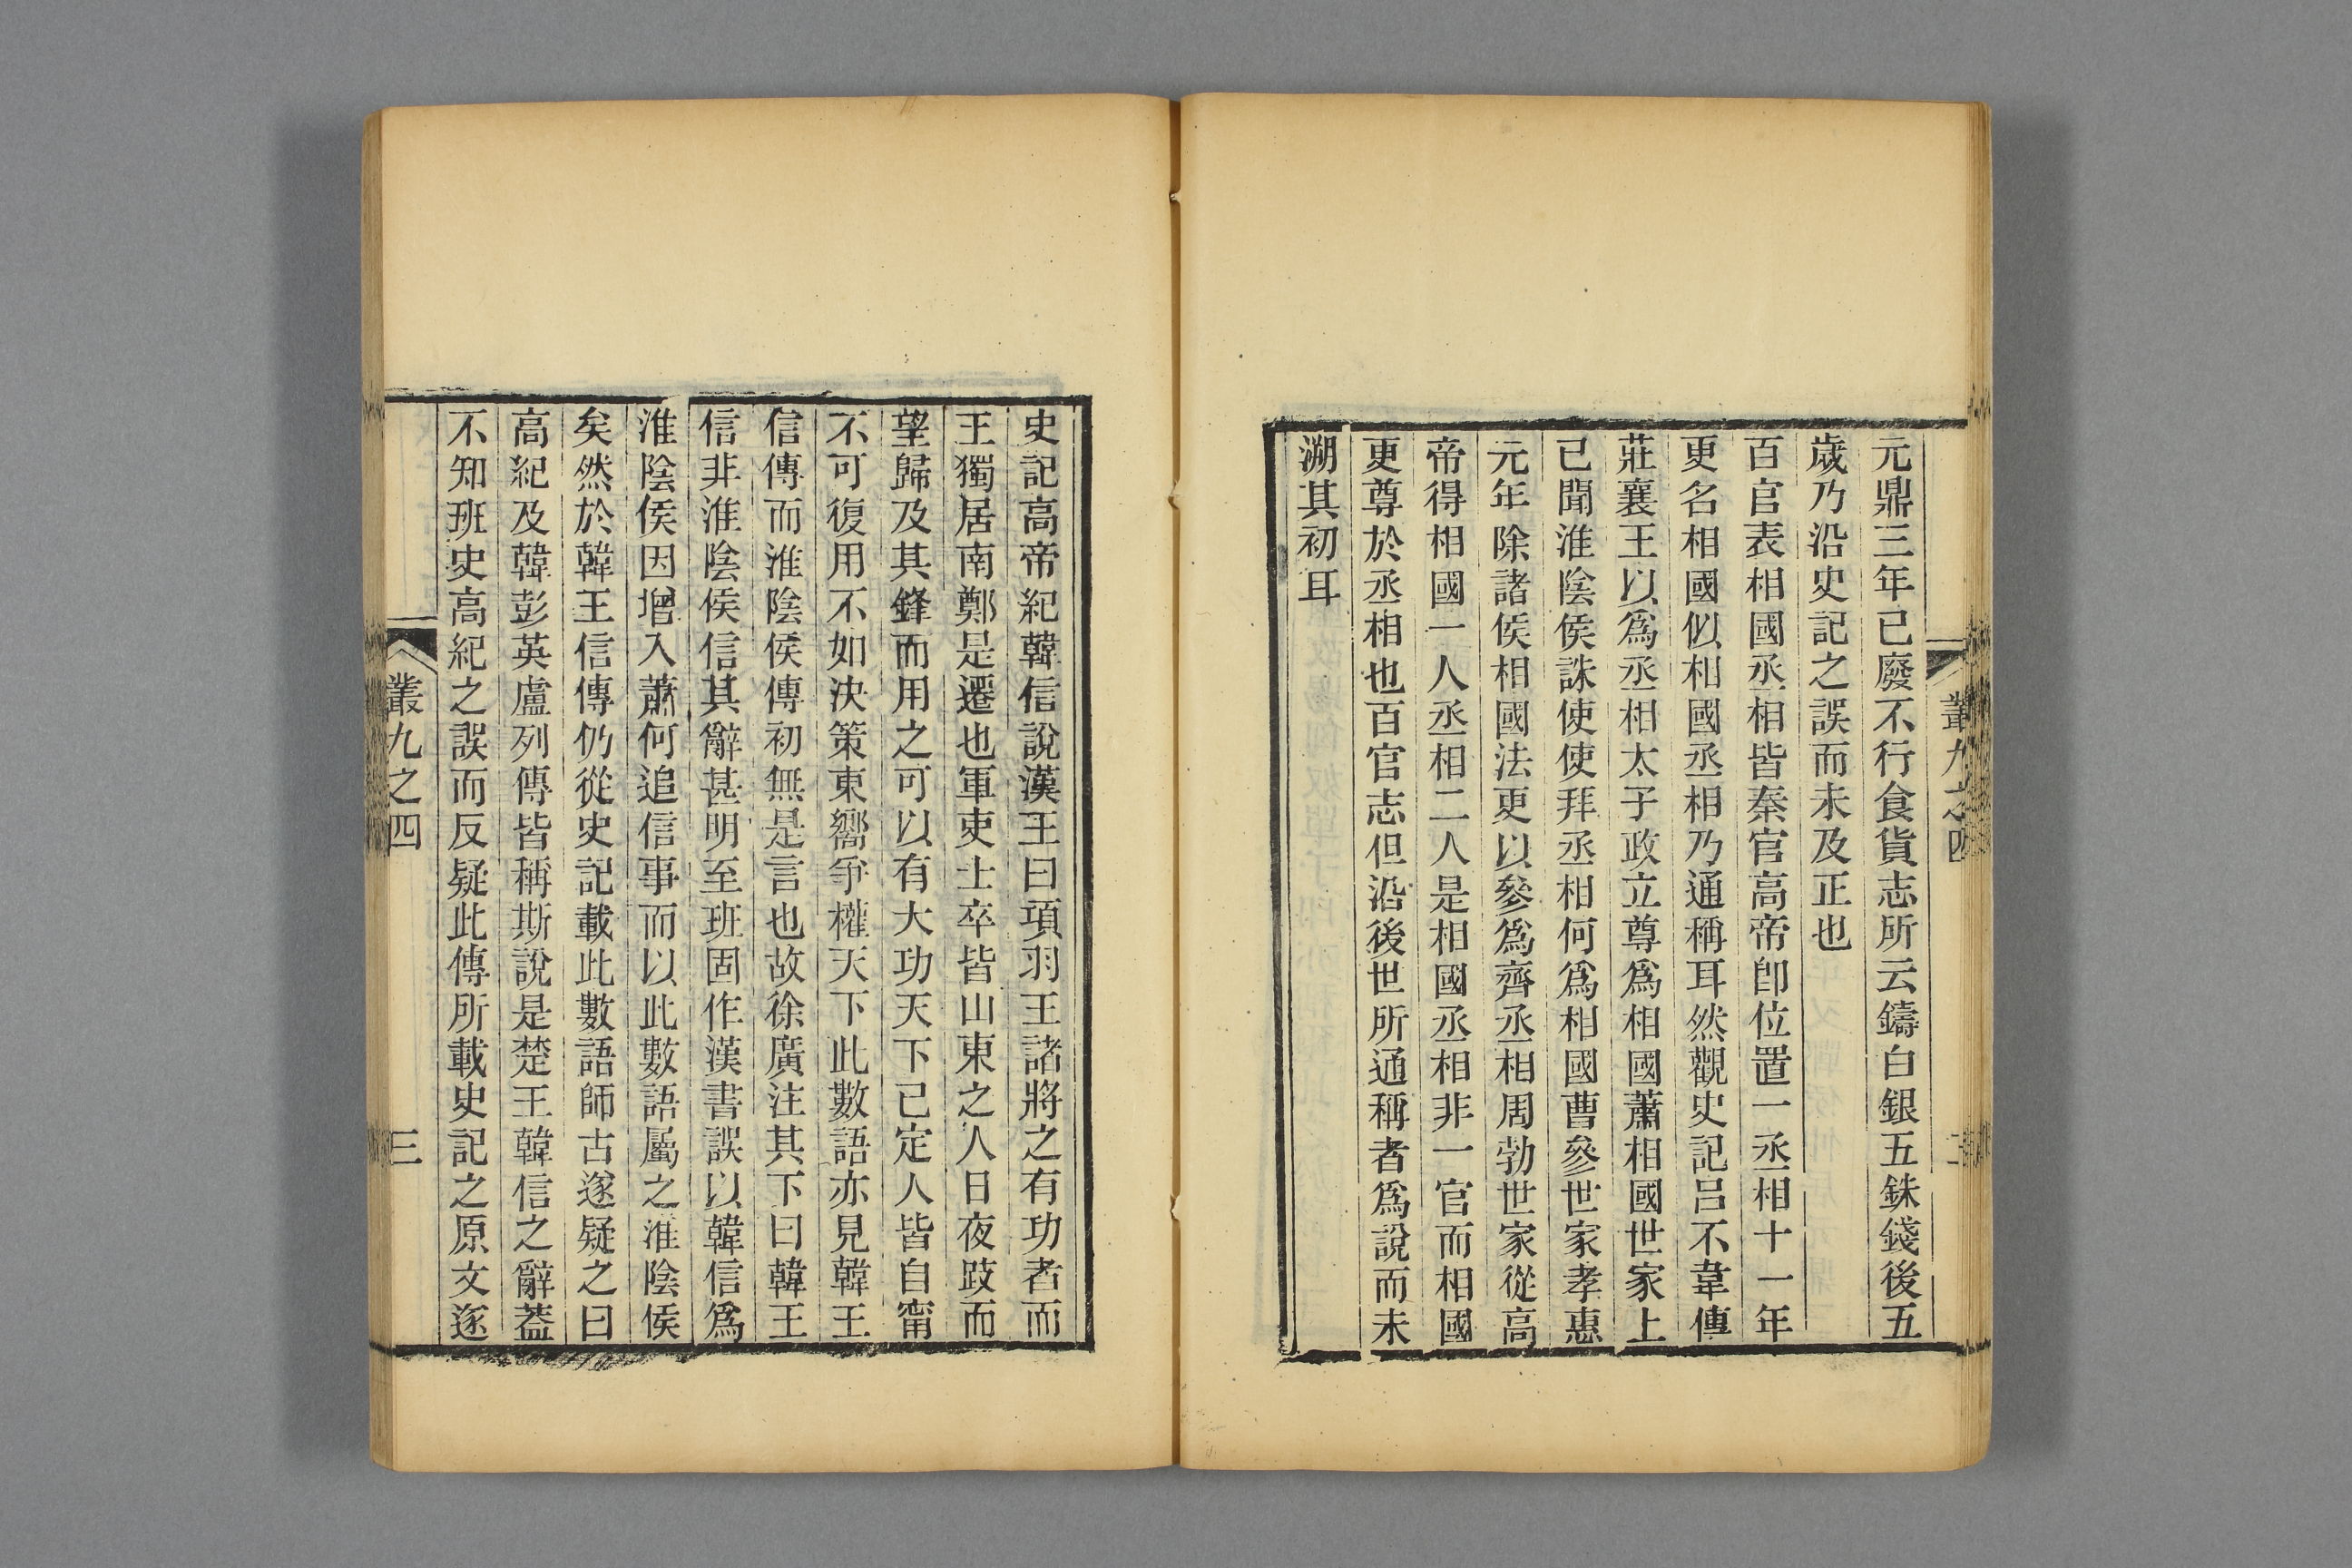 元鼎三年已廢不行食貨志所云鑄白銀五銖錢後五
歲乃沿史記之誤而未及正也
百官表相國丞相皆秦官高帝卽位置一丞相十一年
更名相國似相國丞相乃通稱耳然觀史記呂不韋傳
莊襄王以爲丞相太子政立尊爲相國蕭相國世家上
已聞淮陰侯誅使使拜丞相何爲相國曹參世家孝惠
元年除諸侯相國法更以參爲齊丞相周勃世家從高
帝得相國一人丞相二人是相國丞相非一官而相國
更尊於丞相也百官志但沿後世所通稱者爲說而未
溯其初耳
叢九之四
二
史記高帝紀韓信說漢王曰項羽王諸將之有功者而
王獨居南鄭是遷也軍吏士卒皆山東之人日夜跂而
望歸及其鋒而用之可以有大功天下已定人皆自甯
不可復用不如決策東嚮爭權天下此數語亦見韓王
信傳而淮陰侯傳初無是言也故徐廣注其下曰韓王
信非淮陰侯信其辭甚明至班固作漢書誤以韓信爲
淮陰侯因增入蕭何追信事而以此數語屬之淮陰侯
矣然於韓王信傳仍從史記載此數語師古遂疑之曰
高紀及韓彭英盧列傳皆稱斯說是楚王韓信之辭葢
不知班史高紀之誤而反疑此傳所載史記之原文遂
叢九之四
三